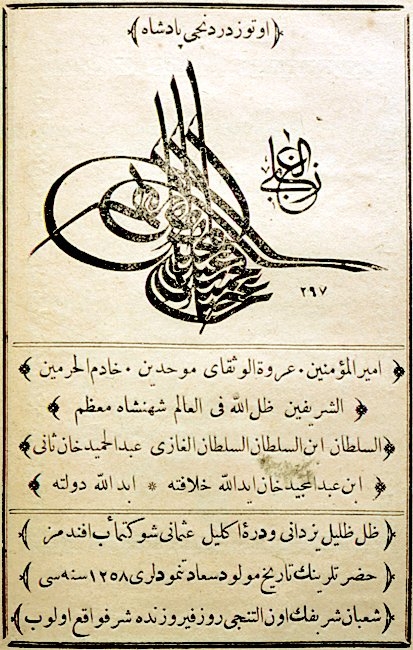 ﴿ اوتوز دردنجی پادشاه ﴾
الغازی
٢٩٧
﴿ امیر المؤمنین ٠ عروة الوثقای موحدین ٠ خادم الحرمین ﴾
﴿ الشریفین ظل الله فی العالم شهنشاه معظم ﴾
﴿ السلطان ابن السلطان السلطان الغازی عبد الحمید خان ثانی ﴾
﴿ ابن عبد المجید خان اید الله خلافته * ابد الله دولته ﴾
﴿ ظل ظلیل یزدانی ودرۀ اکلیل عثمانی شوکتمأب افندمز ﴾
﴿ حضرتلرینك تاریخ مولود سعادتنمودلری ١٢٥٨ سنه سی ﴾
﴿ شعبان شریفك اون التنجی روز فیروزنده شرفواقع اولوب ﴾